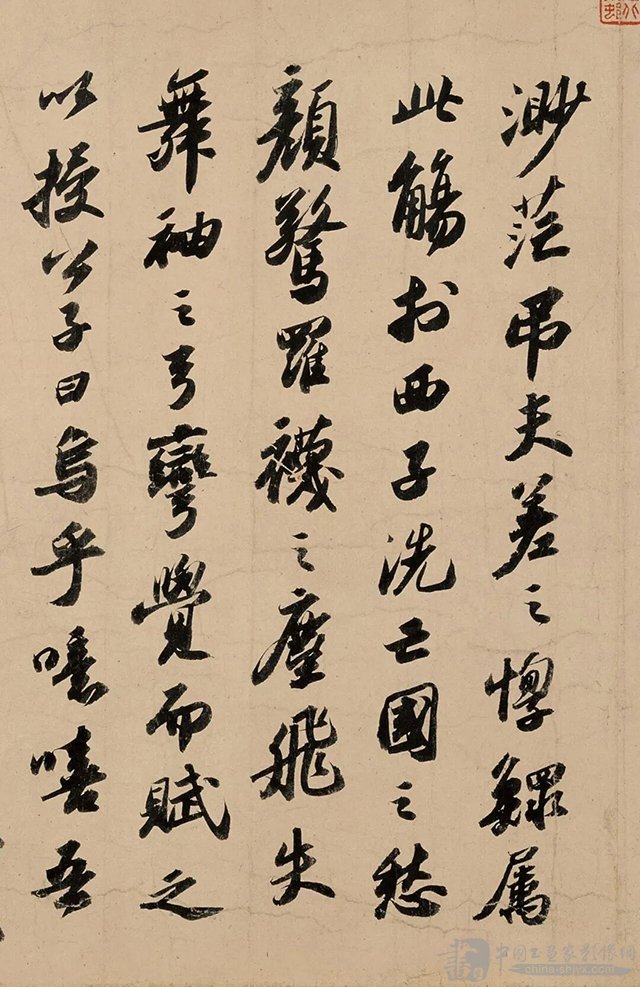 渺茫吊夫差之惸鰥屬
此觴於西子洗亡國之愁
顏驚羅襪之塵飛失
舞袖之弓彎覺而賦之
以授公子曰烏乎噫嘻吾
china-shjyx.com